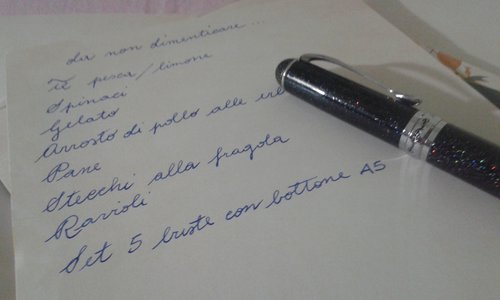 da non dimenticare...
Tè pesca/limone
Spinaci
Gelato
Arrosto di pollo alle
Pane
Stecchi alla fragola
Ravioli
Set 5 buste con bottone A5